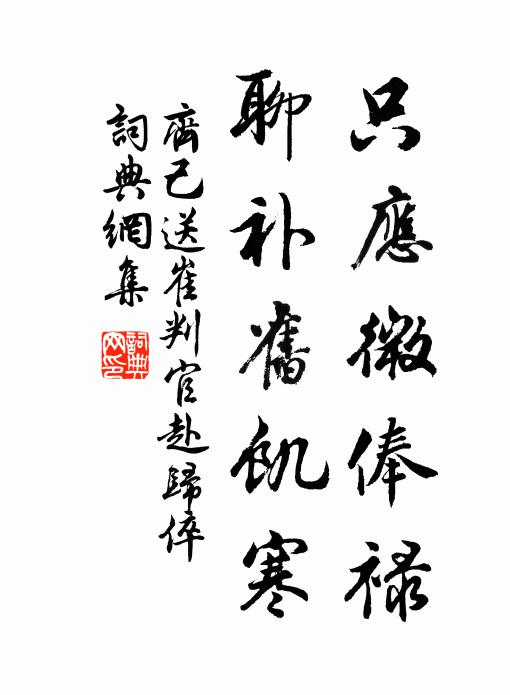 只應微俸禄
聊补舊飢寒
齊己送崔判官赴歸倅
詞典網集
詞典網印